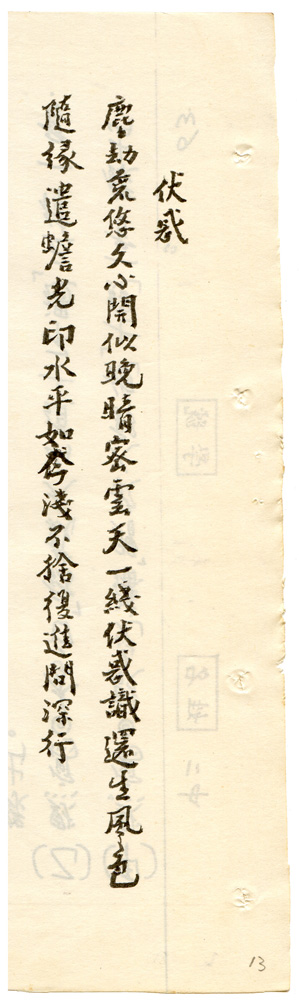 伏惑
塵劫悠久心開似晚晴密雲天一綫伏惑識還生風色
隨緣遣蟾光印水平如淺不捨復進問深行
13